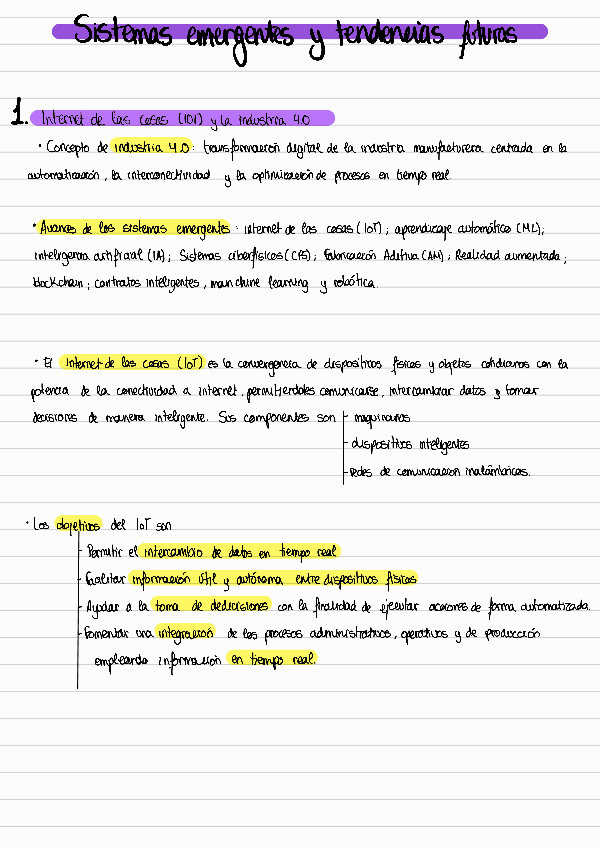 Sistemas emergentes y tendencias futuras
1. Internet de las cosas (IOT) y la industria 4.0
• Concepto de industria 4.0: transformación digital de la industria manufacturera centrada en la
automatización, la interconectividad y la optimización de procesos en tiempo real.
• Avances de los sistemas emergentes: internet de las cosas (IoT); aprendizaje automático (ML);
inteligencia artificial (IA); Sistemas ciberfísicos (CFS); Fabricación Aditiva (AM); Realidad aumentada;
blockchain; contratos inteligentes, manchine learning y robótica.
• El Internet de las cosas (IoT) es la convergencia de dispositivos físicos y objetos cotidianos con la
potencia de la conectividad a internet, permitiéndoles comunicarse, intercambiar datos y tomar
decisiones de manera inteligente. Sus componentes son - maquinarias
- dispositivos inteligentes
- Redes de comunicación inalámbricas.
• Los objetivos del IoT son
- Permitir el intercambio de datos en tiempo real
- Facilitar información útil y autónoma entre dispositivos físicos
- Ayudar a la toma de dedicisiones con la finalidad de ejecutar acciones de forma automatizada.
- Fomentar una integración de los procesos administrativos, operativos y de producción
empleando información en tiempo real.